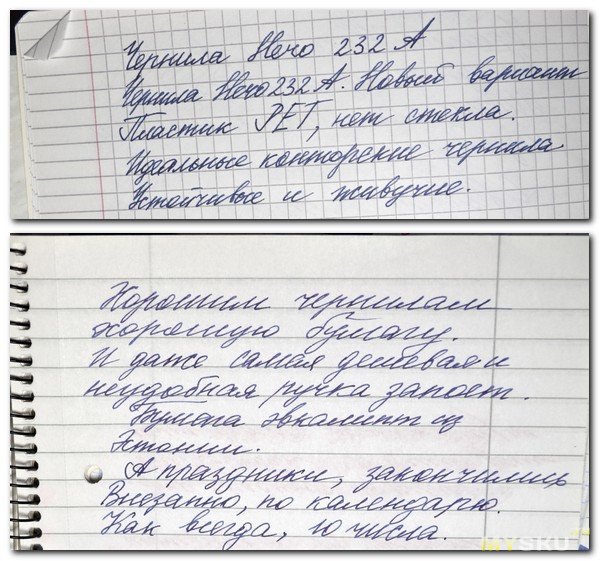 Чернила Hero 232 А
Чернила Hero 232 А. Новый вариант
Пластик РЕТ, нет стекла.
Идеальные конторские чернила
Устойчивые и живучие.
Хорошим чернилам
хорошую бумагу.
И даже самая дешевая и
неудобная ручка запоет.
Бумага эвкалипт из
Эстонии.
А праздники, закончились
Внезапно, по календарю.
Как всегда, 10 числа.
MYSKU